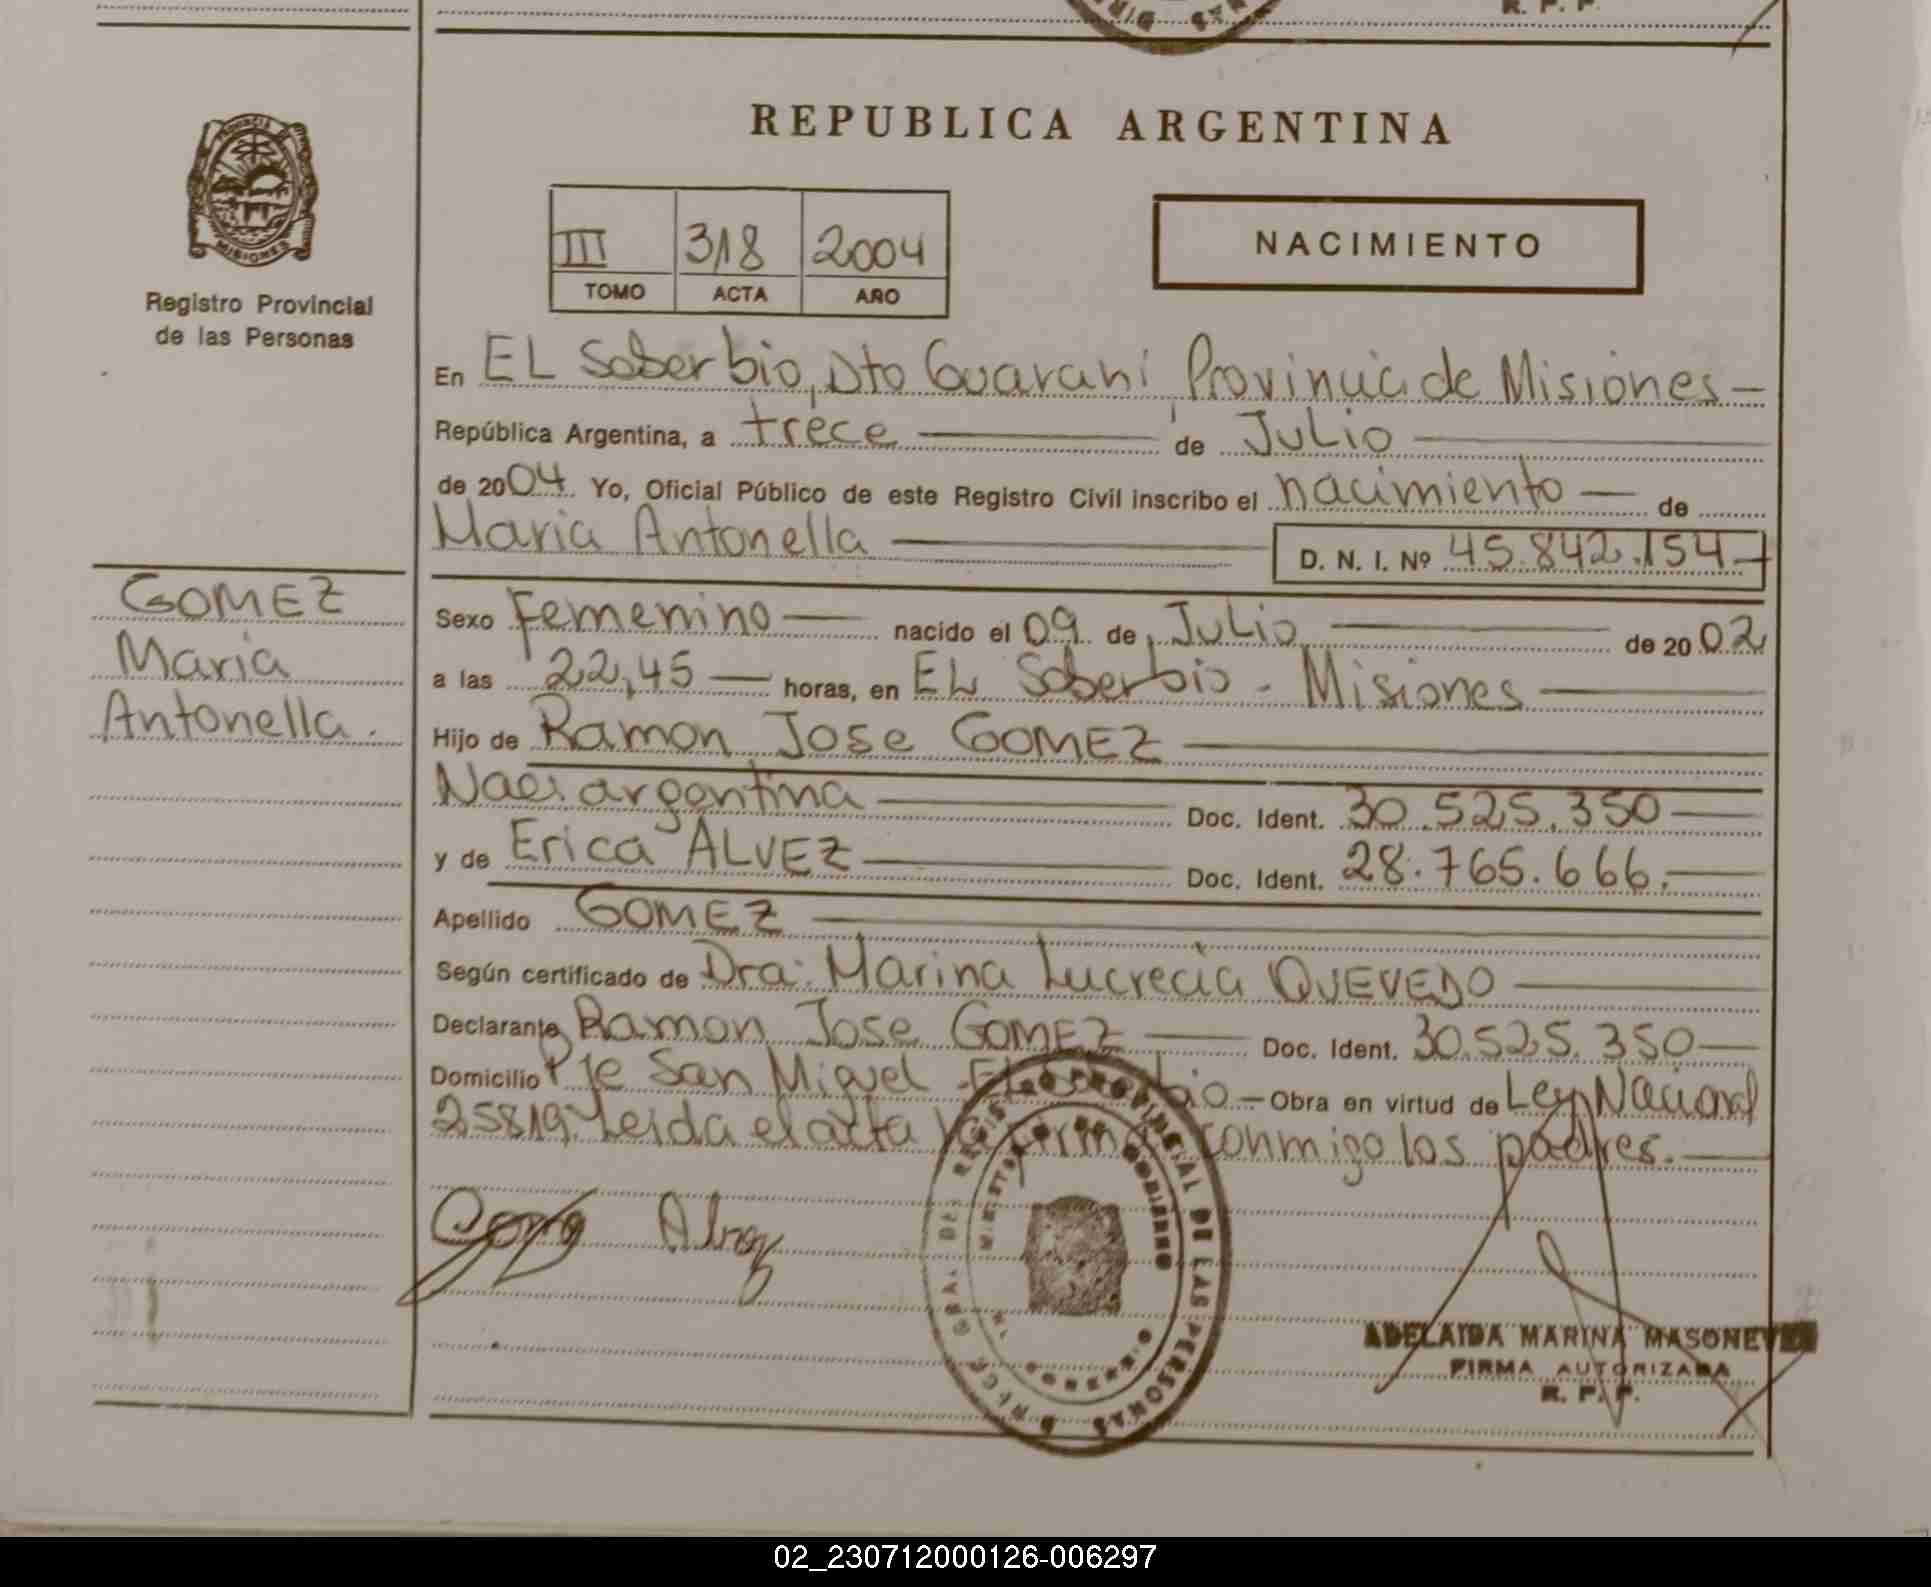 R. P. P.
REPUBLICA ARGENTINA
PROVINCIA DE
MISIONES
Registro Provincial
de las Personas
III 318 2004
TOMO ACTA AÑO
NACIMIENTO
En EL Soberbio, Dto Guarani Provincia de Misiones —
República Argentina, a trece — de Julio —
de 2004. Yo, Oficial Público de este Registro Civil inscribo el nacimiento — de
Maria Antonella — D. N. I. Nº 45.842.154 —
GOMEZ
Maria
Antonella.
Sexo Femenino — nacido el 09 de Julio — de 2002
a las 22,45 — horas, en EL Soberbio - Misiones —
Hijo de Ramon Jose GOMEZ —
Nac: argentina — Doc. Ident. 30.525.350 —
y de Erica ALVEZ — Doc. Ident. 28.765.666. —
Apellido GOMEZ —
Según certificado de Dra: Marina Lucrecia QUEVEDO —
Declarante Ramon Jose GOMEZ — Doc. Ident. 30.525.350 —
Domicilio Pje San Miguel - El Soberbio — Obra en virtud de Ley Nacional
25819. Leida el acta la firman conmigo los padres. —
ADELAIDA MARINA
FIRMA AUTORIZADA
R. P. P.
02_230712000126-006297